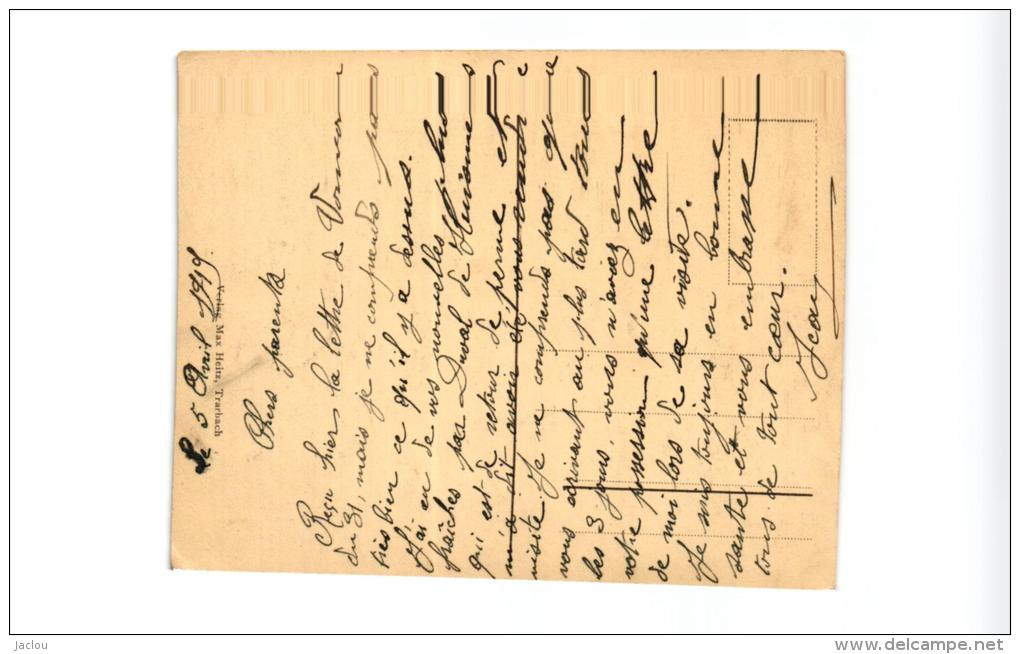 Le 5 Avril 1919
Chers parents
Reçu hier la lettre de
du 31, mais je ne comprends pas
très bien ce qu'il y a dessus.
J'ai eu de vos nouvelles plus
fraîches par Duval de
qui est de retour de perme et
m'a dit avoir de vous rendre
visite. Je ne comprends pas que
vous écrivant au plus tard tous
les 3 jours, vous n'aviez en
votre possession qu'une lettre
de moi lors de sa visite.
Je suis toujours en bonne
santé et vous embrasse
tous de tout cœur.
Jean
Verlag Max Heitz, Trarbach
jaclou
www.delcampe.net